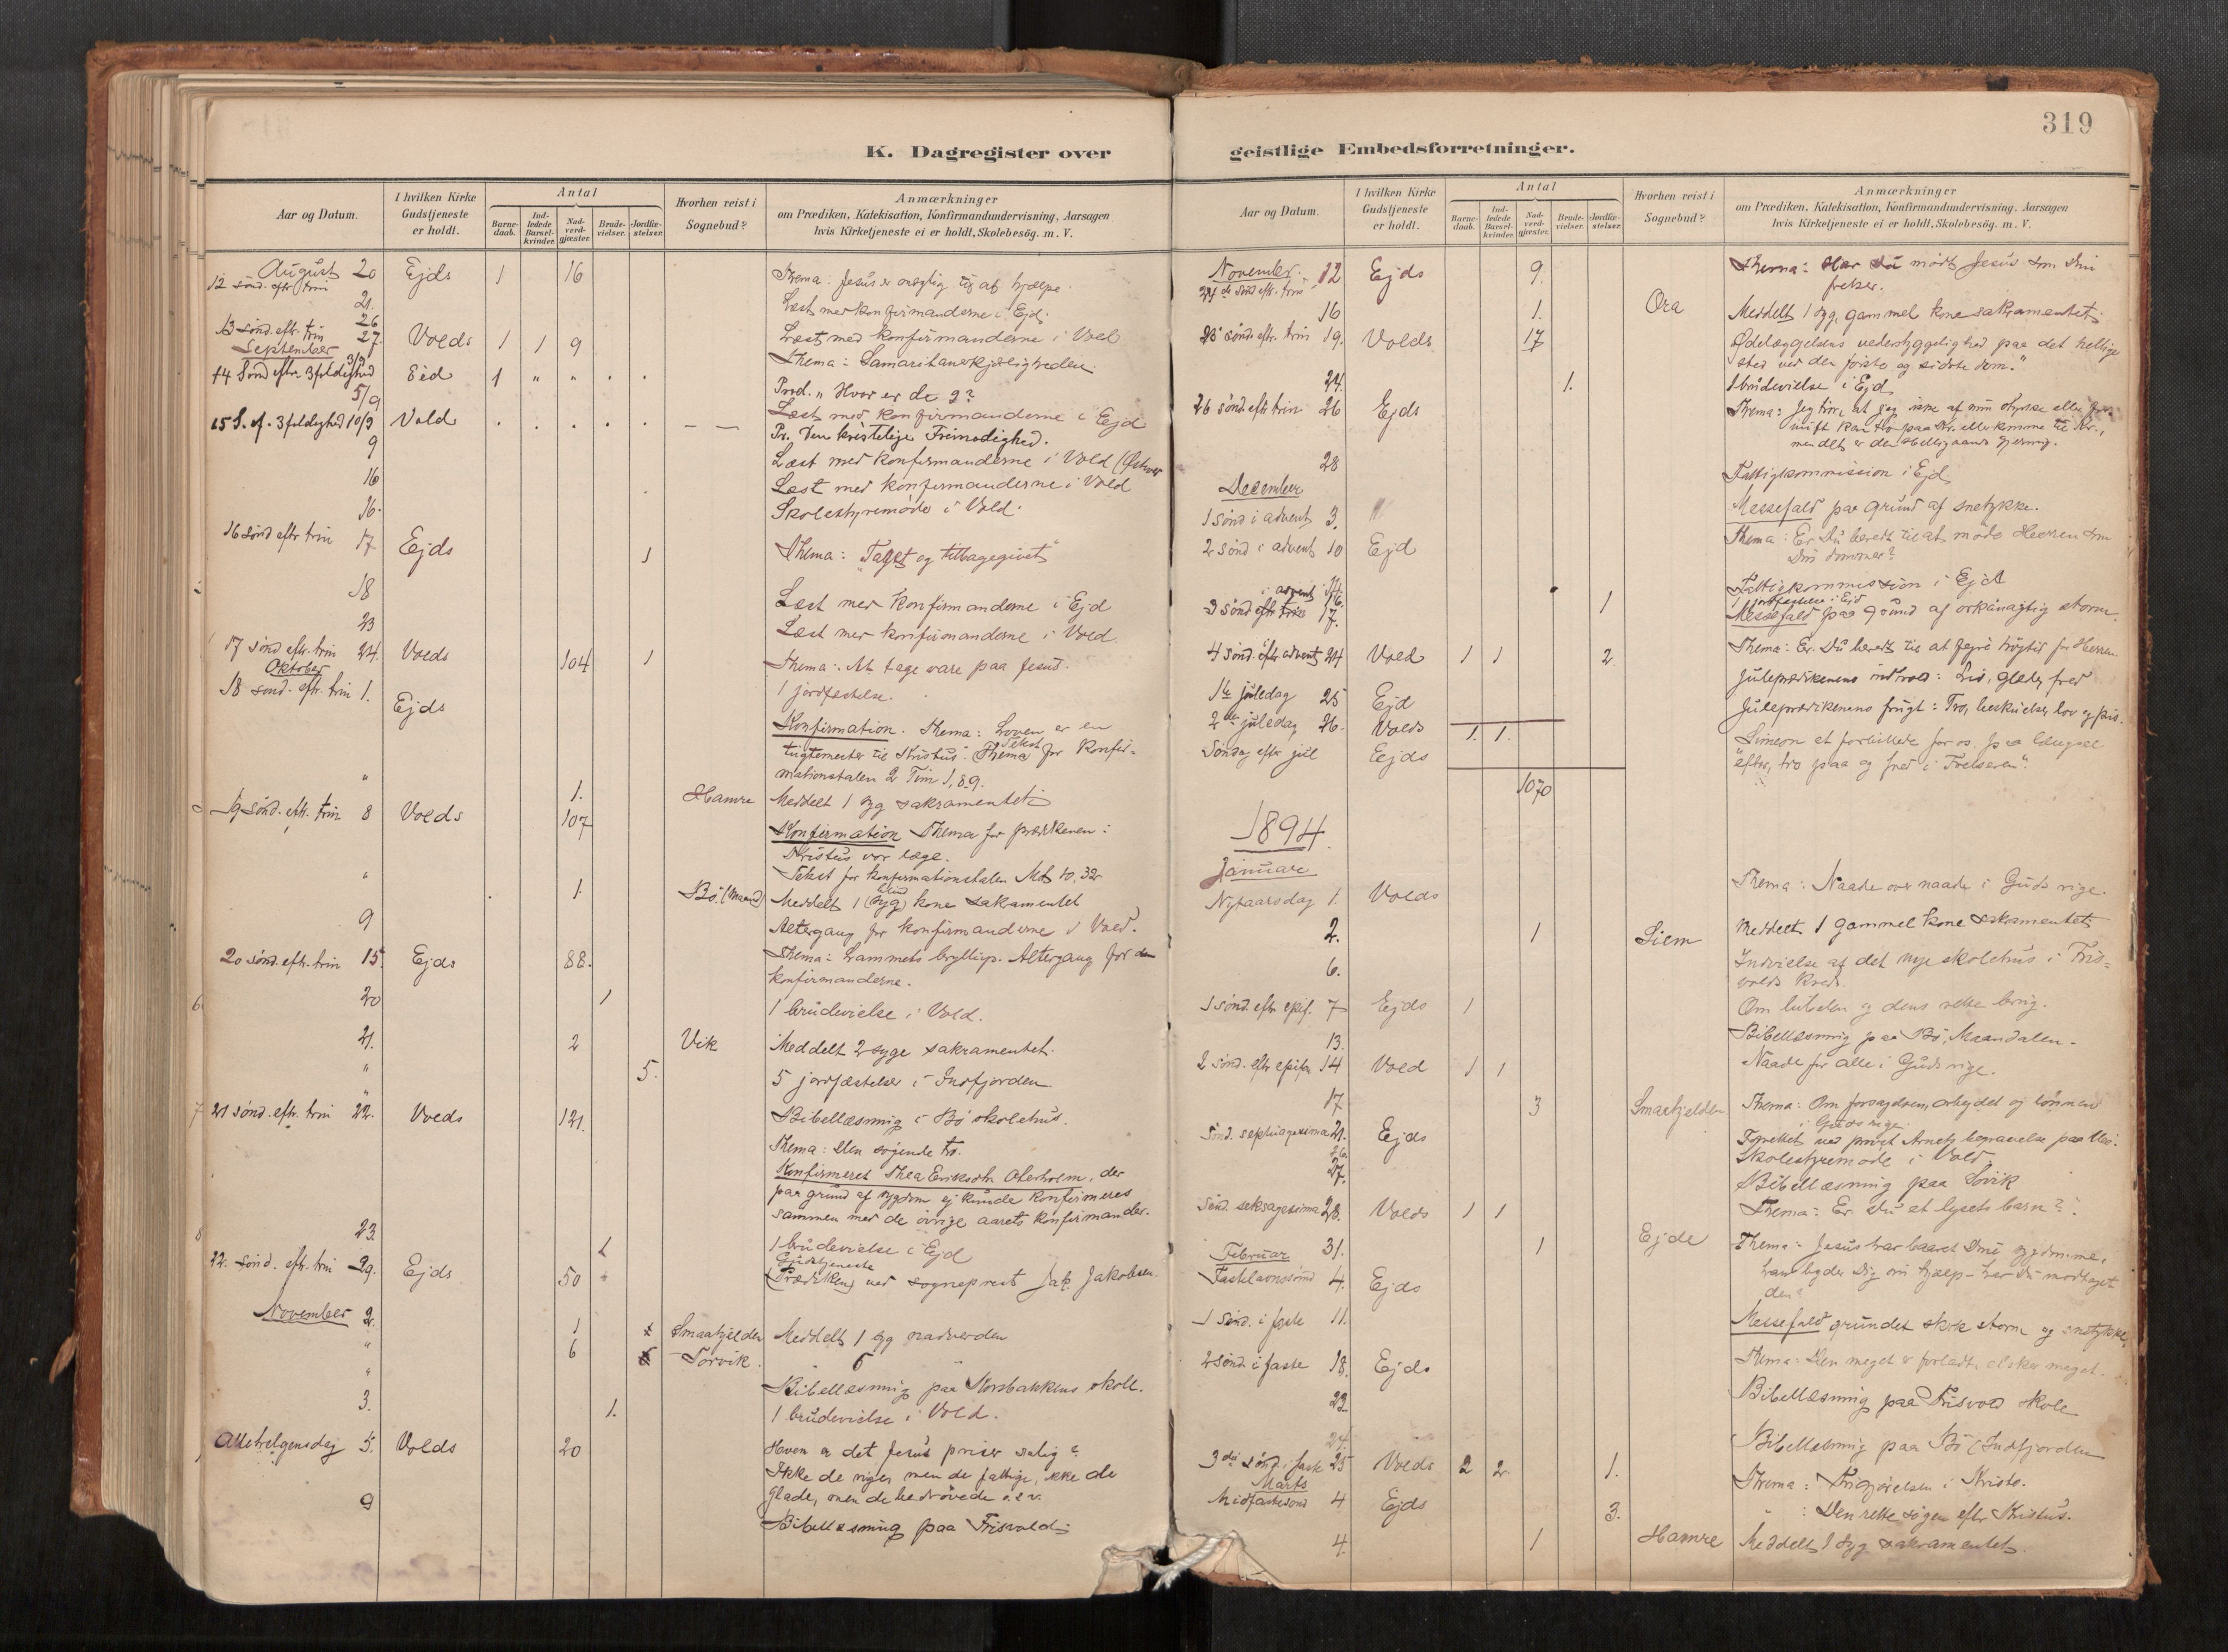 K. Dagregister over
Aar og Datum.
I hvilken Kirke Gudstjeneste er holdt.
Antal
Barne-daab.
Ind-ledede Barsel-kvinder.
Nad-verd-gjæster.
Brude-vielser.
Jordfæ-stelser.
Hvorhen reist i Sognebud?
Anmærkninger
om Prædiken, Katekisation, Konfirmandundervisning, Aarsagen
hvis Kirketjeneste ei er holdt, Skolebesög. m. V.
August 20 Ejds 1 16 Thema: Jesus er mægtig til at hjælpe.
12 sönd. eftr trin
21. Læst med konfirmanderne i Ejd.
26 Læst med konfirmanderne i Vold
13 sönd. eftr. trin 27. Volds 1 1 9 Thema: Samaritankjærligheden.
September
14 Sönd eftr. 3foldighed 3/9 Eid 1 " " Præd. " Hvor er de 9?
5/9 Læst med konfirmanderne i Ejd
15 S. ef. 3foldighed 10/9 Vold Pr. Den kristelige Frimodighed.
9 Læst med konfirmanderne i Vold
16 Læst med konfirmanderne i Vold
16. Skolestyremöde i Vold.
16 sönd eftr trin 17 Ejds 1 Thema: "Taget og tilbagegivet"
18 Læst med konfirmanderne i Ejd
23 Læst med konfirmanderne i Vold.
17 sönd eftr. trin 24. Volds 104 1 Thema: At tage vare paa Jesus.
1 jordfæstelse.
Oktober
18 sönd. eftr. trin 1. Ejds
Konfirmation. Thema: Loven er en
tugtemester til Kristus. Tekst for konfir-
mationstalen 2 Tim 1, 8.9.
" 1. Hamre Meddelt 1 syg sakramentet
19 sönd. eftr. trin 8 Volds 107 Konfirmation Thema for prædikenen:
Kristus vor læge.
Tekst for konfirmationstalen Mt 10. 32
" 1 Bö (Maand) Meddelt 1 (syg) blind kone sakramentet
9 Altergang for konfirmanderne i Vold.
20 sönd. eftr. trin 15. Ejds 88. Thema: Lammets bryllup. Altergang for
konfirmanderne.
20 1 1 brudevielse i Vold.
21. 2 Vik Meddelt 2 syge sakramentet.
" 5. 5 jordfæstelser i Indfjorden
" Bibellæsning i Bö skolehus.
21 sönd. eftr. trin 22. Volds 121. Thema: Den sögende tro.
Konfirmeret Thea Eriksdtr, der
paa grund af sygdom ej kunde konfirmeres
sammen med de övrige aarets konfirmander.
23. 1 1 brudevielse i Ejd
22. sönd. eftr. trin 29. Ejds 50 Gudstjeneste (Prædiken) ved sogneprest Jak. Jakobsen.
November 2. 1 Smaahjelden Meddelt 1 syg nadverden
" 6 Torvik. " 6 "
" Bibellæsning paa Korsbakkens skole.
3. 1. 1 brudevielse i Vold.
Allehelgensdag 5. Volds 20 Hvem er det Jesus priser salig?
Ikke de rige, men de fattige, ikke de
glade, men de bedrövede o.s.v.
9 Bibellæsning paa Frisvold.
319
geistlige Embedsforretninger.
Aar og Datum.
I hvilken Kirke Gudstjeneste er holdt.
Antal
Barne-daab.
Ind-ledede Barsel-kvinder.
Nad-verd-gjæster.
Brude-vielser.
Jordfæ-stelser.
Hvorhen reist i Sognebud?
Anmærkninger
om Prædiken, Katekisation, Konfirmandundervisning, Aarsagen
hvis Kirketjeneste ei er holdt, Skolebesög. m. V.
November. 12 Ejds 9. Thema: Har Du mödt Jesus som Din
frelser.
24de sönd eftr. trin
16 1. Ora Meddelt 1 syg, gammel kone sakramentet.
25 sönd eftr. trin 19. Volds 17 Ödelæggelsens vederstyggelighed paa det hellige
sted ved den förste og sidste dom."
24. 1. 1 brudevielse i Ejd
26 sönd eftr trin 26 Ejds Thema: Jeg tror, at jeg ikke af min styrke eller for-
nuft kan tro paa Kr. eller komme til Kr.,
men det er den Helligaands gjerning.
28 Fattigkommission i Ejd
December
1 sönd i advent 3. Messefald paa grund af snetykke.
2 sönd i advent 10 Ejd Thema: Er Du beredt til at möde Herren som
Din dommer?
14. Fattigkommission i Ejd
16. 1 1 jordfæstelse i Ejd
3 sönd i advent 17. Messefald paa grund af orkanagtig storm.
4 sönd. i advent 24 Vold 1 1 2 Thema: Er Du beredt til at fejre höjtid for Herren.
1ste juledag 25 Ejd Juleprædikenens indhold: Lys, glæde, fred
2den juledag 26. Volds 1. 1. Juleprædikenens frugt: Tro, beskuelse, lov og pris.
Söndag eftr jul Ejds Simeon et forbillede for os paa længsel
efter, tro paa og fred i Frelseren".
1070
1894.
Januar
Nytaarsdag 1. Volds Thema: Naade over naade i Guds rige.
2. 1 Siem Meddelt 1 gammel kone sakramentet
6. Indvielse af det nye skolehus i Fris-
volds kreds.
1 sönd. eftr epif. 7 Ejds 1 Om bibelen og dens rette brug.
13. Bibellæsning paa Bö, Maandalen.
2 sönd. eftr epifa 14 Vold 1 1 Naade for alle i Guds rige.
17 3 Smaahjelden
Sönd. septuagesima 21. Ejds Thema: Om forsagelsen, arbejdet og lönnen
i Guds rige.
26. Skolestyremöde i Vold.
27. Bibellæsning paa Sövik
Sönd. seksagesima 28. Volds 1 1 Thema: Er Du et lysets barn?
31. 1 Ejde
Februar
Fastelavnssönd 4. Ejds Thema: Jesus har baaret Dine sygdomme,
han byder Dig sin hjælp - har Du modtaget
den?
1 sönd. i faste 11. Messefald grundet sterk storm og snetykke,
2 sönd. i faste 18. Ejds Thema: Den meget er forladt, elsker meget.
23. Bibellæsning paa Frisvold skole
24. Bibellæsning paa Bö i Indfjorden
3die sönd. i faste 25 Volds 2 2. 1. Thema: Frigjörelsen i Kristo.
Marts
Midfastesönd 4 Ejds 3. " : Den rette sögen eftr Kristus.
4. 1 Hamre Meddelt 1 syg sakramentet.